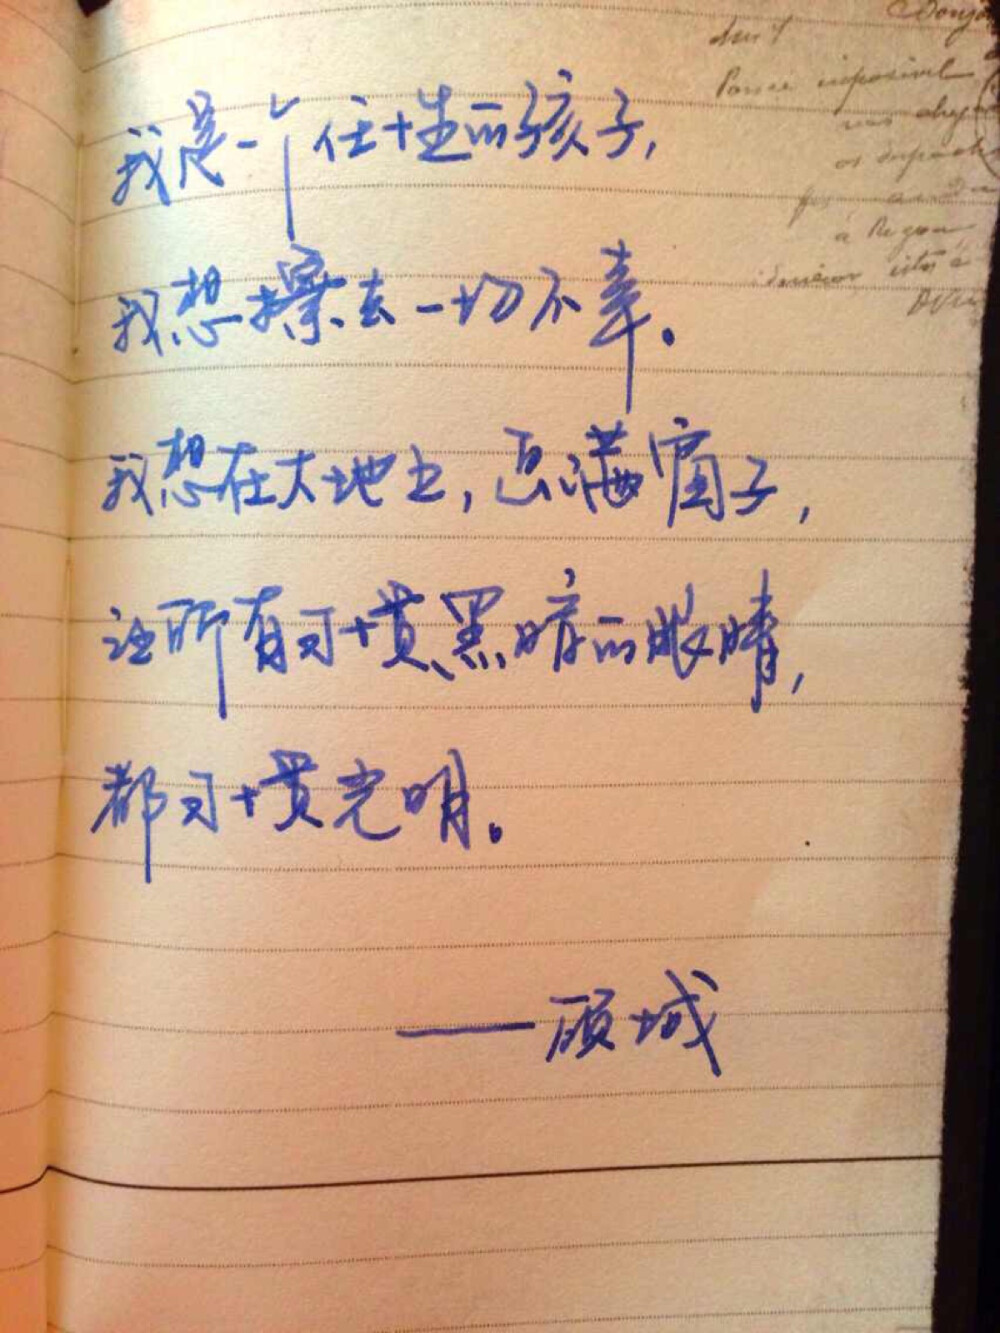 我是一个任性的孩子，
我想擦去一切不幸。
我想在大地上，画满窗子，
让所有习惯黑暗的眼睛，
都习惯光明。
——顾城